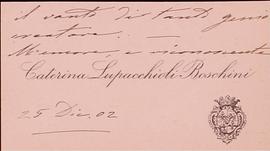 il vanto di tanto genio
creatore. —
Memore e riconoscente
Caterina Lupacchioli-Boschini
25 Dic. 02